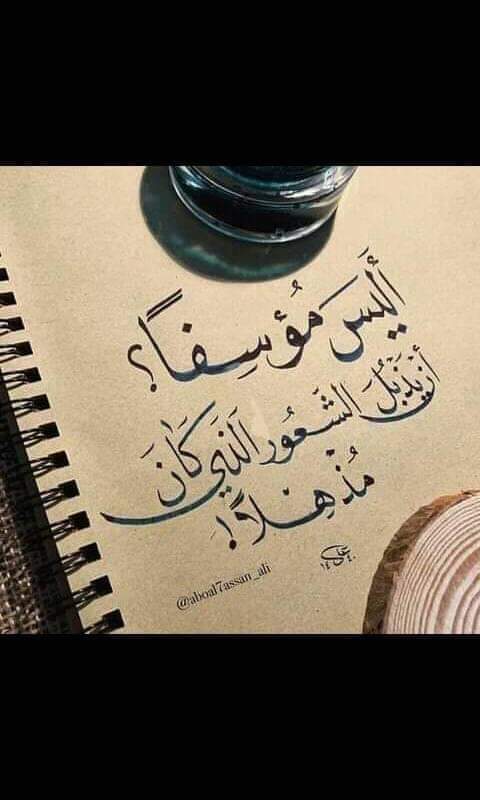 أَلَيسَ مُؤسِفاً؟
أن يَذبُلَ الشّعُور الّذي كَانَ
مُذهِلاً!
علي
١٤٤٠
@aboal7assan_ali